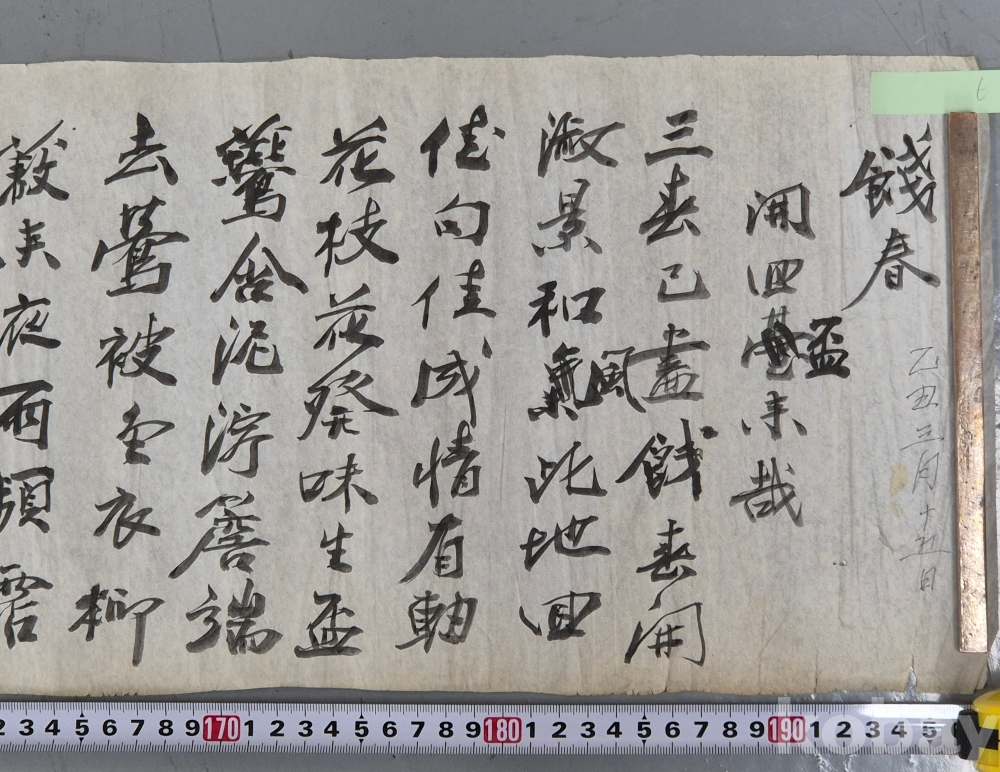 6
餞春
乙丑三月十五日
開回盃來哉
三春已盡餞春開
淑景和風此地回
佳句佳成情有軸
花枝花發味生盃
鷰含泥濘簷端
去鶯被金衣柳
夜雨頻霑
2 3 4 5 6 7 8 9 170 1 2 3 4 5 6 7 8 9 180 1 2 3 4 5 6 7 8 9 190 1 2 3 4 5
kobay